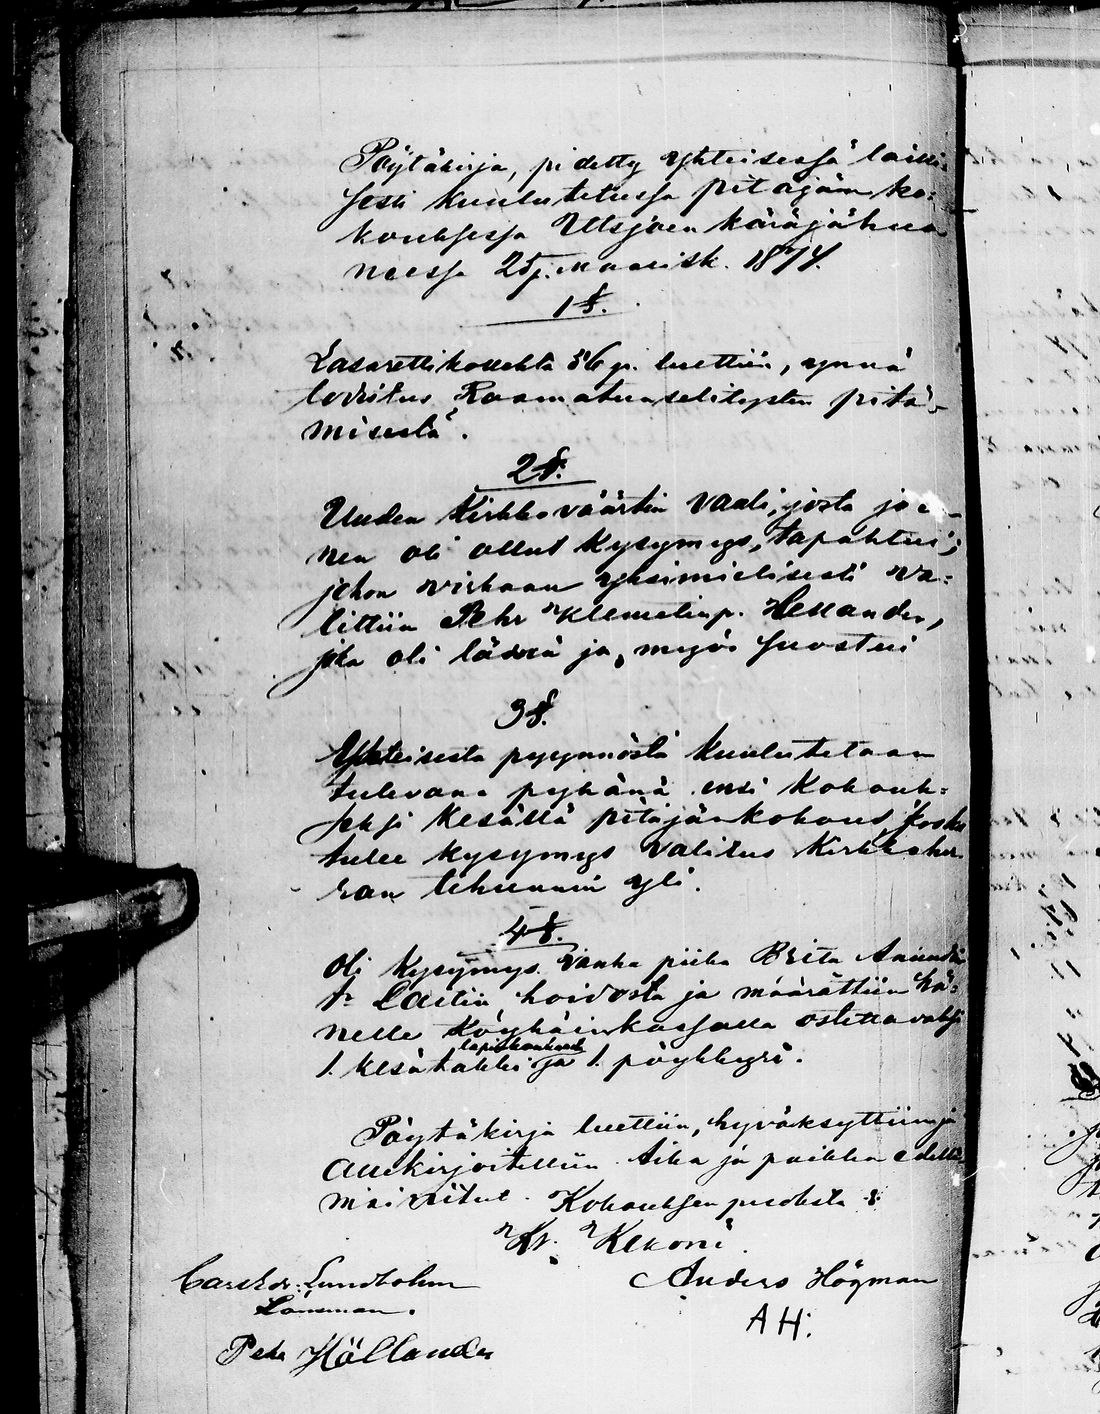 Pöytäkirja, pidetty yhteisessä lailli-
sesti kuulutetussa pitäjän ko-
kouksessa Utsjoen käräjähuo
neessa 25 p. maalisk. 1874.
1 §.
Lasarettikollehta 86 p. luettiin, ynnä
lovitus Raamatunselitysten pitä-
misestä.
2 §.
Uuden Kirkkoväärtin vaali, josta jo en-
nen oli ollut kysymys, tapahtui;
johon virkaan yksimielisesti va-
littiin Pehr Klemetinp. Hellander,
joka oli läsnä ja myös suostui
3 §.
Yhteisestä pyynnöstä kuulutetaan
tulevana pyhänä ensi kokouk-
seksi kesällä pitäjänkokous, koska
tulee kysymys valitus Kirkkoher
ran tehunnin yli.
4 §.
Oli kysymys vanha piika Brita
Laitin hoidosta ja määrättiin hä-
nelle Köyhäinkassalla ostettavaksi
1. kesätakki lapinkankaast ja 1. pöykkyri.
Pöytäkirja luettiin, hyväksyttiin ja
allekirjoitettiin. Aika ja paikka edellä
mainitut. Kokouksen puolesta:
Kr. Kekoni.
Carl Fr. Lundholm
Länsman.
Anders Högman
A H.
Pehr Hällander